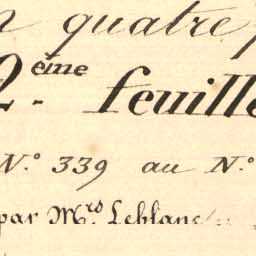 n quatre
2.ème feuille
N.° 339 au N.°
par M.rs Leblanc